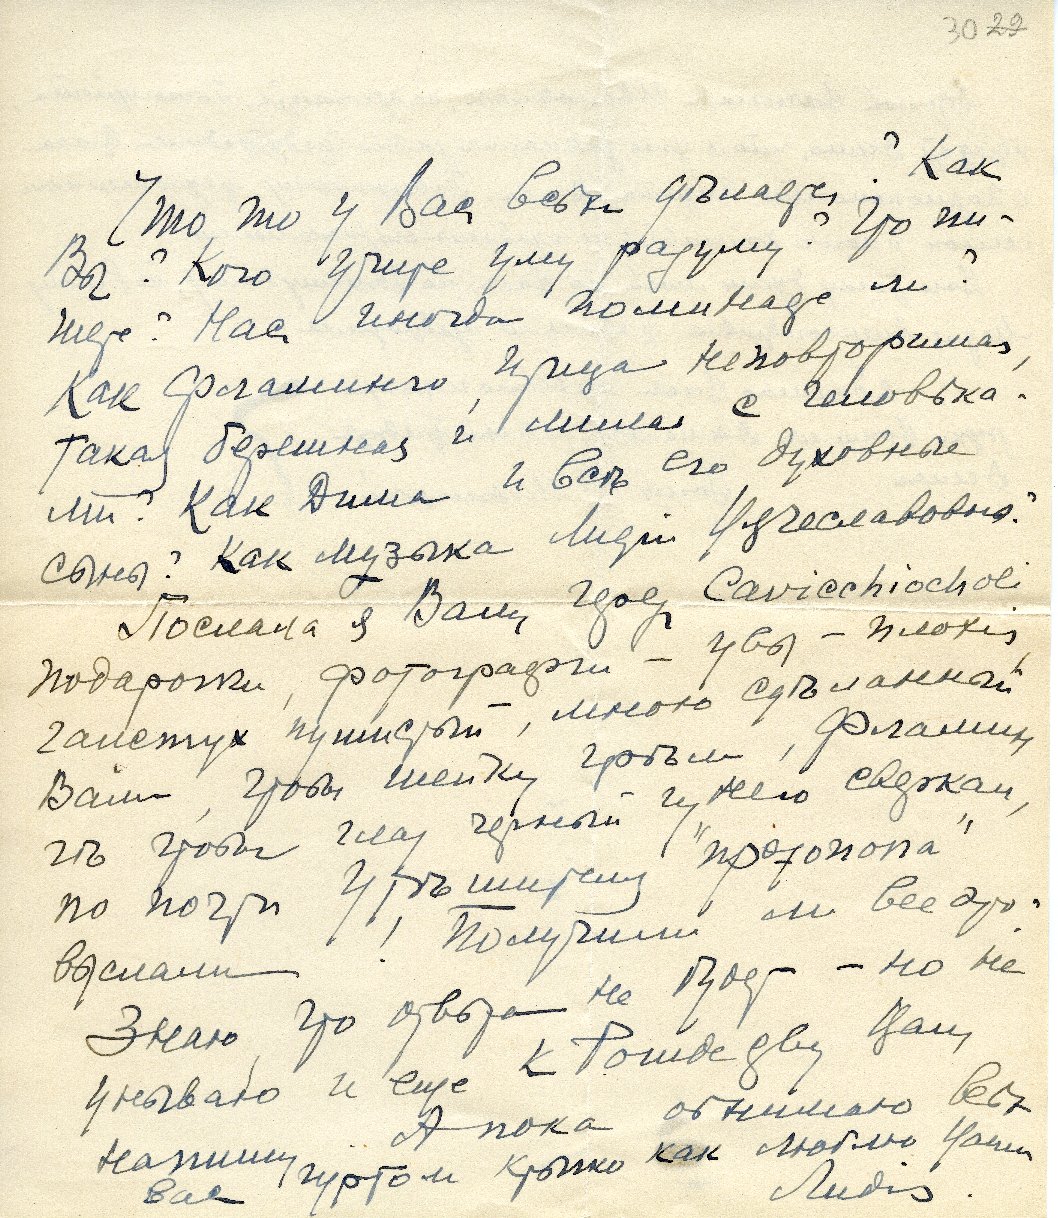 30 29
Что то у Вас всѣх дѣлается? Как
Вы? Кого учите уму разуму? Что пи-
шете? Нас иногда поминаете ли?
Как Фламинго, птица неповторимая,
такая бережная и милая с человѣка-
ми? Как Дима и всѣ его духовные
сыны? Как музыка Лидіи Вячеславовны?
Послала я Вам через Cavicchiocholi
подарочки, фотографіи – увы – плохія,
галстук пушистый, мною сдѣланный
Вам, чтобы шейку грѣли, Фламин
гѣ чтобы глаз черный у нея сверкал,
по почтѣ Утѣшителя "протопопа"
выслали! Получили ли все это?
Знаю, что отвѣта не будет – но не
унываю и еще к Рождеству Вам
напишу. А пока обнимаю всѣх
вас гуртом крѣпко как люблю Ваша
Лидія.